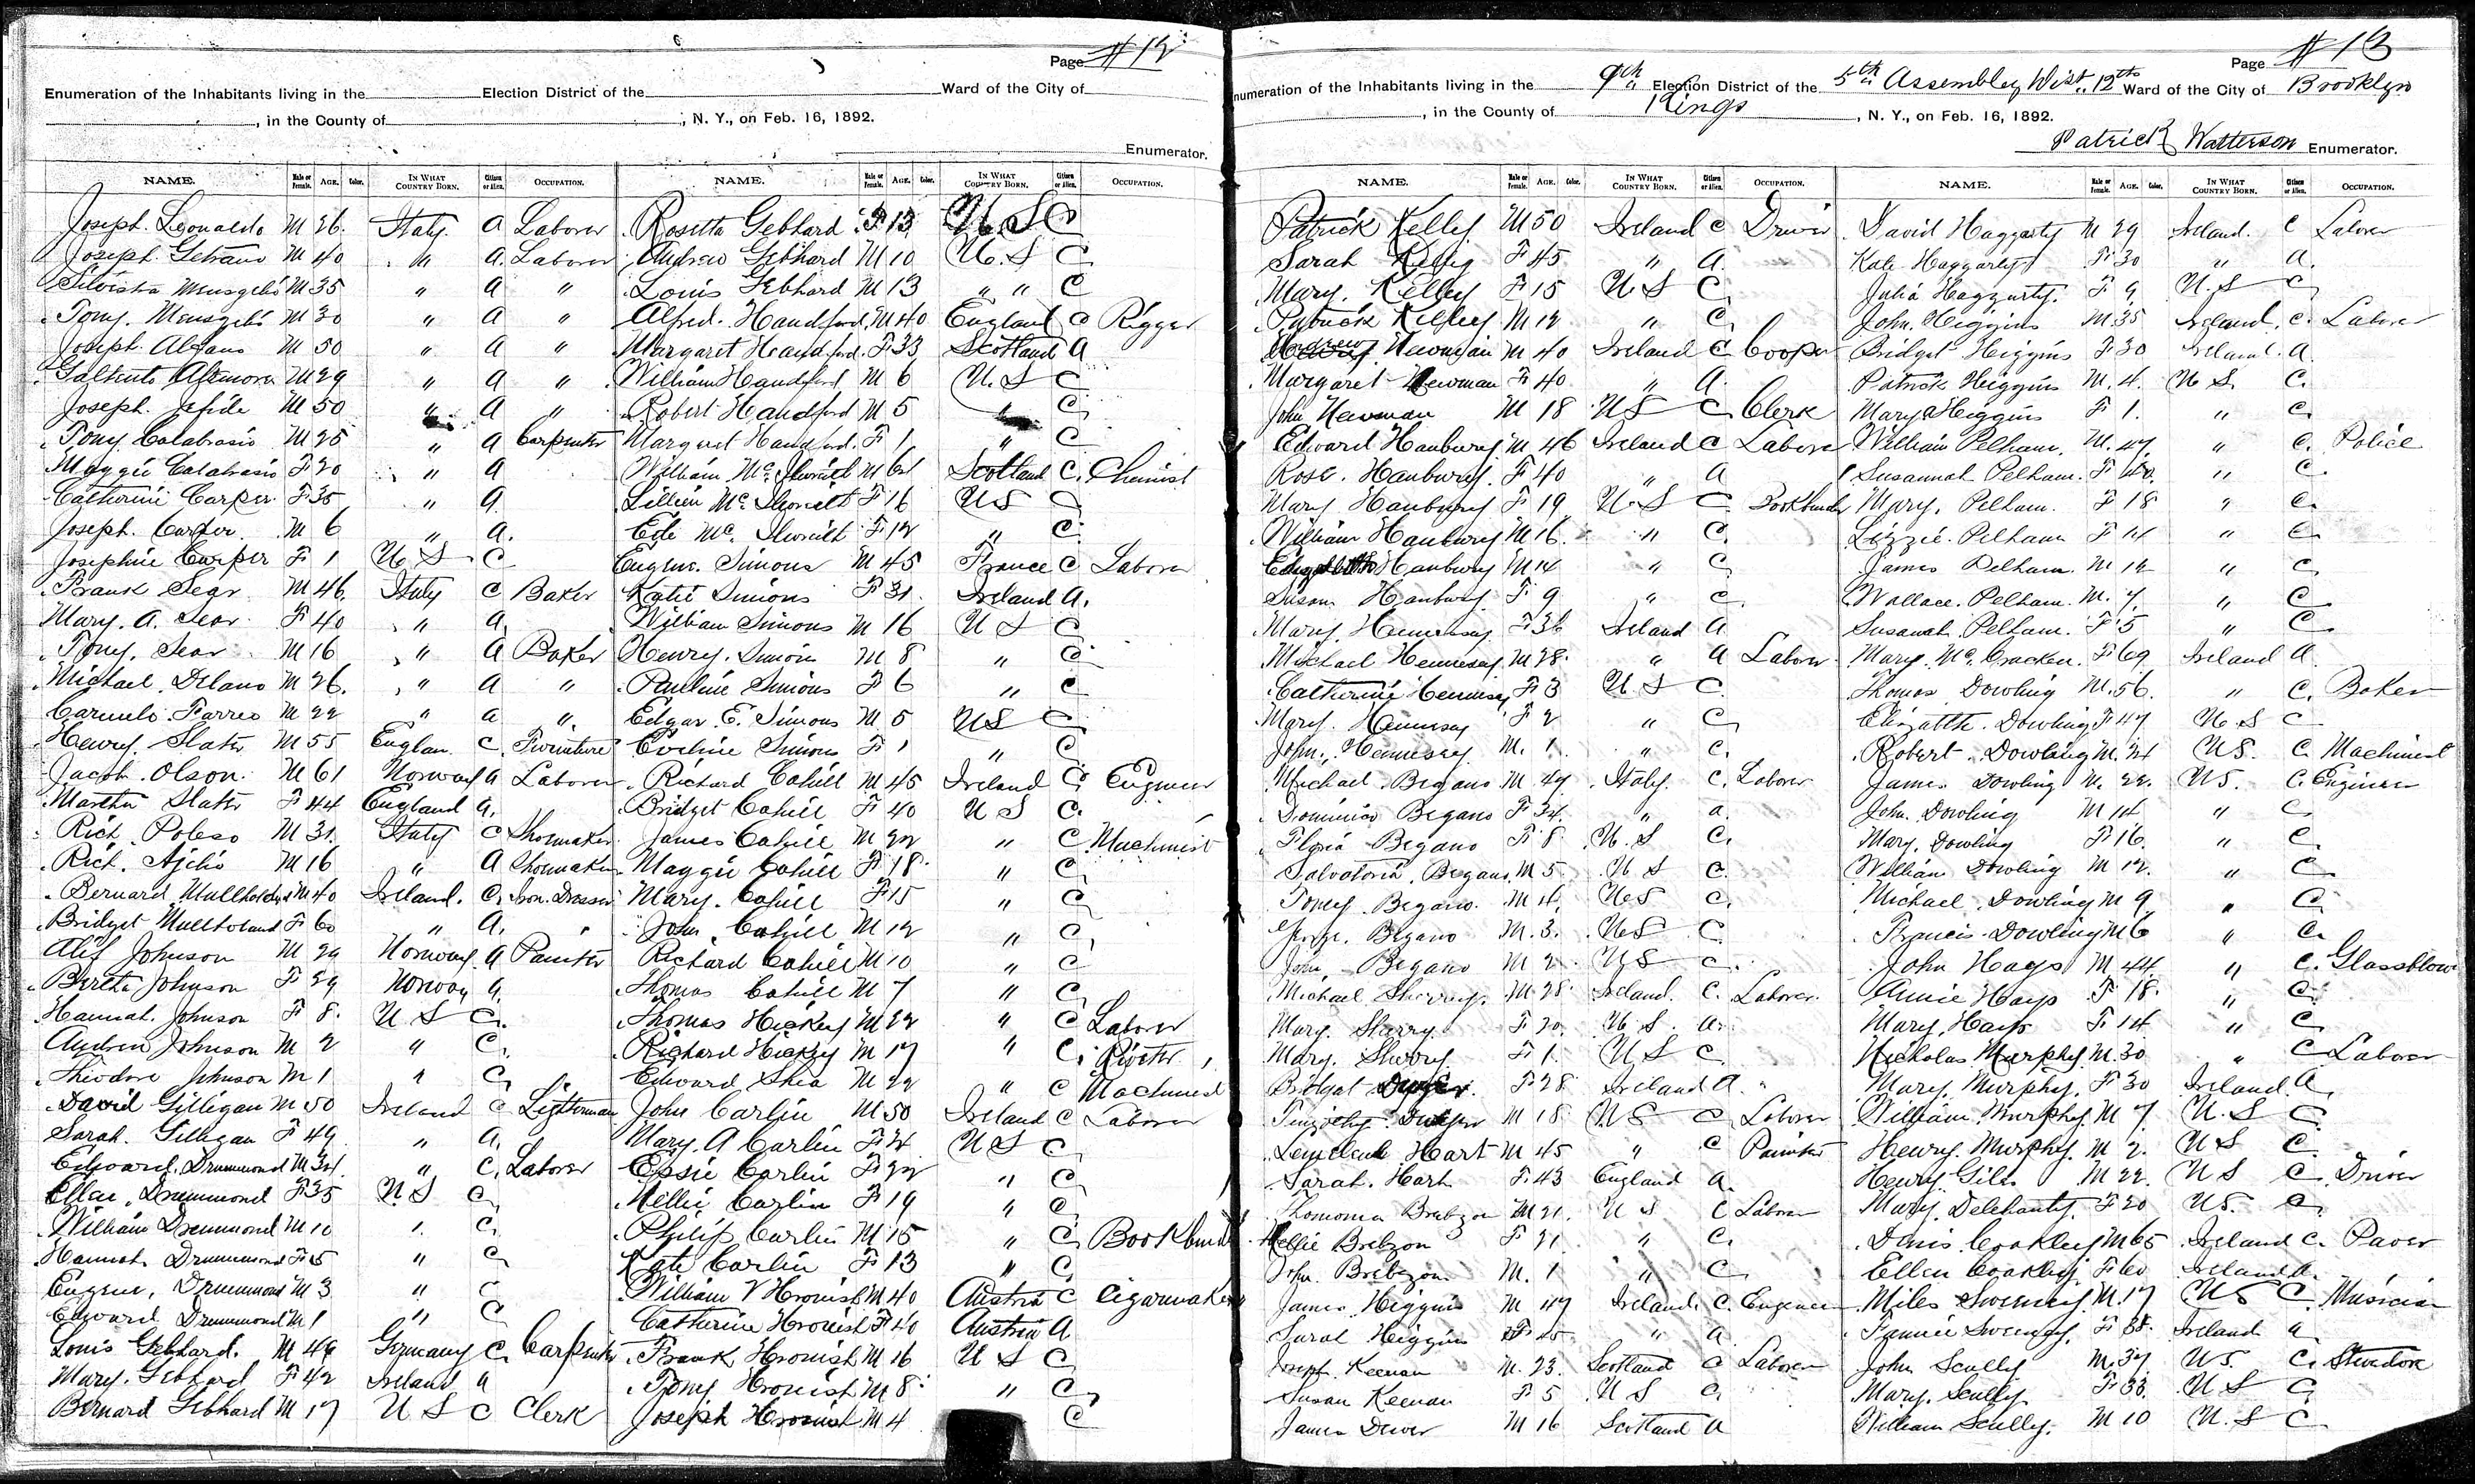 Page #12
Enumeration of the Inhabitants living in the Election District of the Ward of the City of
, in the County of , N. Y., on Feb. 16, 1892.
Enumerator.
NAME. Male or Female. AGE. Color. IN WHAT COUNTRY BORN. Citizen or Alien. OCCUPATION.
Joseph. Leonaldo M 26. Italy. A Laborer
Joseph. Getrano M 40 " A. Laborer
M 35 " A "
Tony. M 30 " A "
Joseph. M 50 " A "
M 29 " A "
Joseph. M 50 " A "
Tony Calabrasio M 25 " A Carpenter
Maggie Calabrasio F 20 " A
Catherine Carper F 35 " A
Joseph. Carper. M 6 " A.
Josephine Carper F 1 U S C
Frank Sear M 46. Italy C Baker
Mary. A. Sear F 40 " A.
Tony. Sear M 16 " A Baker
Michael. Delano M 26. " A "
Carmelo Farreo M 22 " A "
Henry. Slater M 55 Englan. C. Furniture
Jacob. Olson. M 61 Norway A Laborer
Martha Slater F 44 England A.
Rich. Poleso M 31. Italy C Shoemaker
Rich. M 16 " A Shoemaker
Bernard. M 40 Ireland. C. Iron. Dresser
Bridget Mullholand F 60 " A.
Alif Johnson M 29 Norway. A Painter
Bertha Johnson F 29 Norway A.
Hannah. Johnson F 8. U S C.
Andrew Johnson M 2 " C.
Theodore Johnson M 1 " C
David Gilligan M 50 Ireland C Lighterman
Sarah. Gilligan F 49 " A.
Edward. Drummond M 34. " C. Laborer
Ellen. Drummond F 35 U. S C
William Drummond M 10 " C.
Hannah Drummond F 5 " C
Eugene, Drummond M 3 " C
Edward Drummond M 1 " C
Louis Gebhard. M 49 Germany C Carpenter
Mary. Gebhard F 42 Ireland A
Bernard Gebhard M 17 U S C Clerk
NAME. Male or Female. AGE. Color. IN WHAT COUNTRY BORN. Citizen or Alien. OCCUPATION.
Rosetta Gebhard F 13 U. S C
Andrew Gebhard M 10 U. S C
Louis Gebhard M 13 " " C
Alfred. Handford. M 40 England C Rigger
Margaret Handford. F 33 Scotland A
William Handford M 6 U. S C
Robert Handford M 5 " C
Margaret Handford. F 1 " C
William Mc. Ilwraith M 64 Scotland C. Chemist
Lillien Mc. Ilwraith F 16 U S C
Mc. Ilwraith F 12 " C
Eugene. Simons M 45 France C Laborer
Katie Simons F 31. Ireland A.
William Simons M 16 U S C
Henry. Simons M 8 " C
Pauline Simons F 6 " C
Edgar. E. Simons M 5 U S C
Eveline Simons F 1 " C
Richard Cahill M 45 Ireland C Engineer
Bridget Cahill F 40 U S C.
James Cahill M 22 " C Machinist
Maggie Cahill F 18. " C
Mary. Cahill F 15 " C
John. Cahill M 12 " C
Richard Cahill M 10 " C
Thomas Cahill M 7 " C
Thomas Hickey M 22 " C Laborer
Richard Hickey M 17 " C.
Edward Shea M 22 " C Machinist
John Carlin M 50 Ireland C Laborer
Mary. A Carlin F U S C
Essie Carlin F 22 " C
Nellie Carlin F 19 " C
Philip Carlin M 15 " C Bookbinder
Kate Carlin F 13 " C
William V Hronish M 40 Austria C Cigarmaker
Catherine Hronish F 40 Austria A
Frank Hronish M 16 U S C
Tony Hronish M 8. " C
Joseph Hronish M 4 C
Page #13
Enumeration of the Inhabitants living in the 9th Election District of the 5th Assembly Dist. 12th Ward of the City of Brooklyn
, in the County of Kings , N. Y., on Feb. 16, 1892.
Patrick Watterson Enumerator.
NAME. Male or Female. AGE. Color. IN WHAT COUNTRY BORN. Citizen or Alien. OCCUPATION.
Patrick Kelley. M 50 Ireland C Driver
Sarah Kelley F 45 " A.
Mary. Kelley F 15 U. S C
Patrick Kelley M 12 " C
Andrew Newman M 40 Ireland C Cooper
Margaret Newman F 40 " A.
John Newman M 18 U S C Clerk
Edward Hanbury. M 46 Ireland C Laborer
Rose. Hanbury. F 40 " A
Mary Hanbury F 19 U. S C Bookbinder
William Hanbury M 16. " C.
Hanbury M 14 " C
Susan Hanbury. F 9 " C
Mary. Hennesay F 36 Ireland A
Michael Hennesay M 28. " A Laborer
Catherine Hennesay F 3 U S C
Mary. Hennesay F 2 " C
John. Hennesay M. 1 " C.
Michael. Begano M 47 Italy. C. Laborer
Dominico Begano F 34. " A.
Begano F 8 U. S C.
Salvatoria. Begano. M 5. U S C.
Toney. Begano. M 4. U S C.
George. Begano M. 3. U S C
John. Begano M 2 U S C.
Michael Sherry. M 28. Ireland. C. Laborer.
Mary. Sherry. F 20. U. S. A.
Mary. Sherry F 1. U S C
Bridgat Dwyer. F 28 Ireland A.
Timothy Dwyer M 18 U S C Laborer
Hart M 45 " C Painter
Sarah. Hart F. 43 England A.
Brebzon M 21. U S C Laborer
Nellie Brebzon F 21 " C.
John. Brebzon M. 1 " C
James Higgins M 47 Ireland. C. Engeneer
Sarah Higgins F 45 " A
Joseph Keenan M. 23. Scotland C Laborer
Susan Keenan F 5 U S C.
James Dever M 16 Scotland A
NAME. Male or Female. AGE. Color. IN WHAT COUNTRY BORN. Citizen or Alien. OCCUPATION.
David Haggarty M 29 Ireland. C Laborer
Kate Haggarty F 30 " A.
Julia Haggarty. F 9 U. S C
John. Higgins M. 35 Ireland. C. Laborer
Bridget Higgins F 30 Ireland. A.
Patrick Higgins M. 4. U S. C.
Mary Higgins F 1. " C
William Pelham. M. 47. " C. Police
Susannah Pelham. F 40. " C.
Mary. Pelham. F 18 " C.
Lizzie. Pelham F 14 " C
James Pelham. M 12 " C
Wallace. Pelham. M. 7. " C
Susanah Pelham. F 5 " C
Mary. Mc. Cracken. F 69 Ireland A
Thomas Dowling M. 56. " C. Baker
Elizabeth. Dowling F 47 U. S C
Robert. Dowling M. 24 U S. C. Machinest
James Dowling M. 22. U S. C. Engineer
John. Dowling M 14 " C
Mary. Dowling F 16. " C.
William Dowling M 12. " C
Michael. Dowling M 9. " C
Francis. Dowling M 6 " C.
John Hays M 44. " C. Glassblow
Annie Hays F 18. " C.
Mary. Hays F 14 " C
Nicholas Murphy. M. 30 " C Laborer
Mary. Murphy. F 30 Ireland. A
William. Murphy. M 7. U. S C
Henry. Murphy. M 2. U S C.
Henry. Giles M 22. U S C. Driver
Mary. Delehanty. F 20 U S. C
Denis. Coakley M 65 Ireland C. Paver
Ellen Coakley. F 60 Ireland A.
Miles Sweeney. M. 17 U S C. Musician
Fannie Sweeney. F 38. Ireland A
John Scully M. 37 U S. C. Stevedore
Mary. Scully F 33. U. S C
William Scully. M 10 U. S C